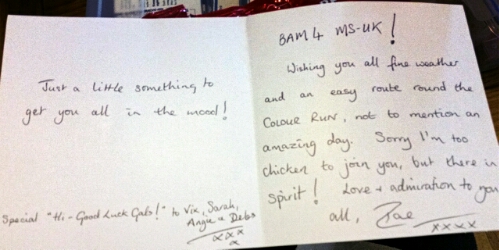 Just a little something to
get you all in the mood!
Special "Hi-Good Luck Gals!" to Vix, Sarah,
Angie & Debs
xxx
x
BAM 4 MS-UK!
Wishing you all fine weather
and an easy route round the
COLOUR RUN, not to mention an
amazing day. Sorry I'm too
chicken to join you, but there in
spirit! Love + admiration to you
all, Rae
xxxx